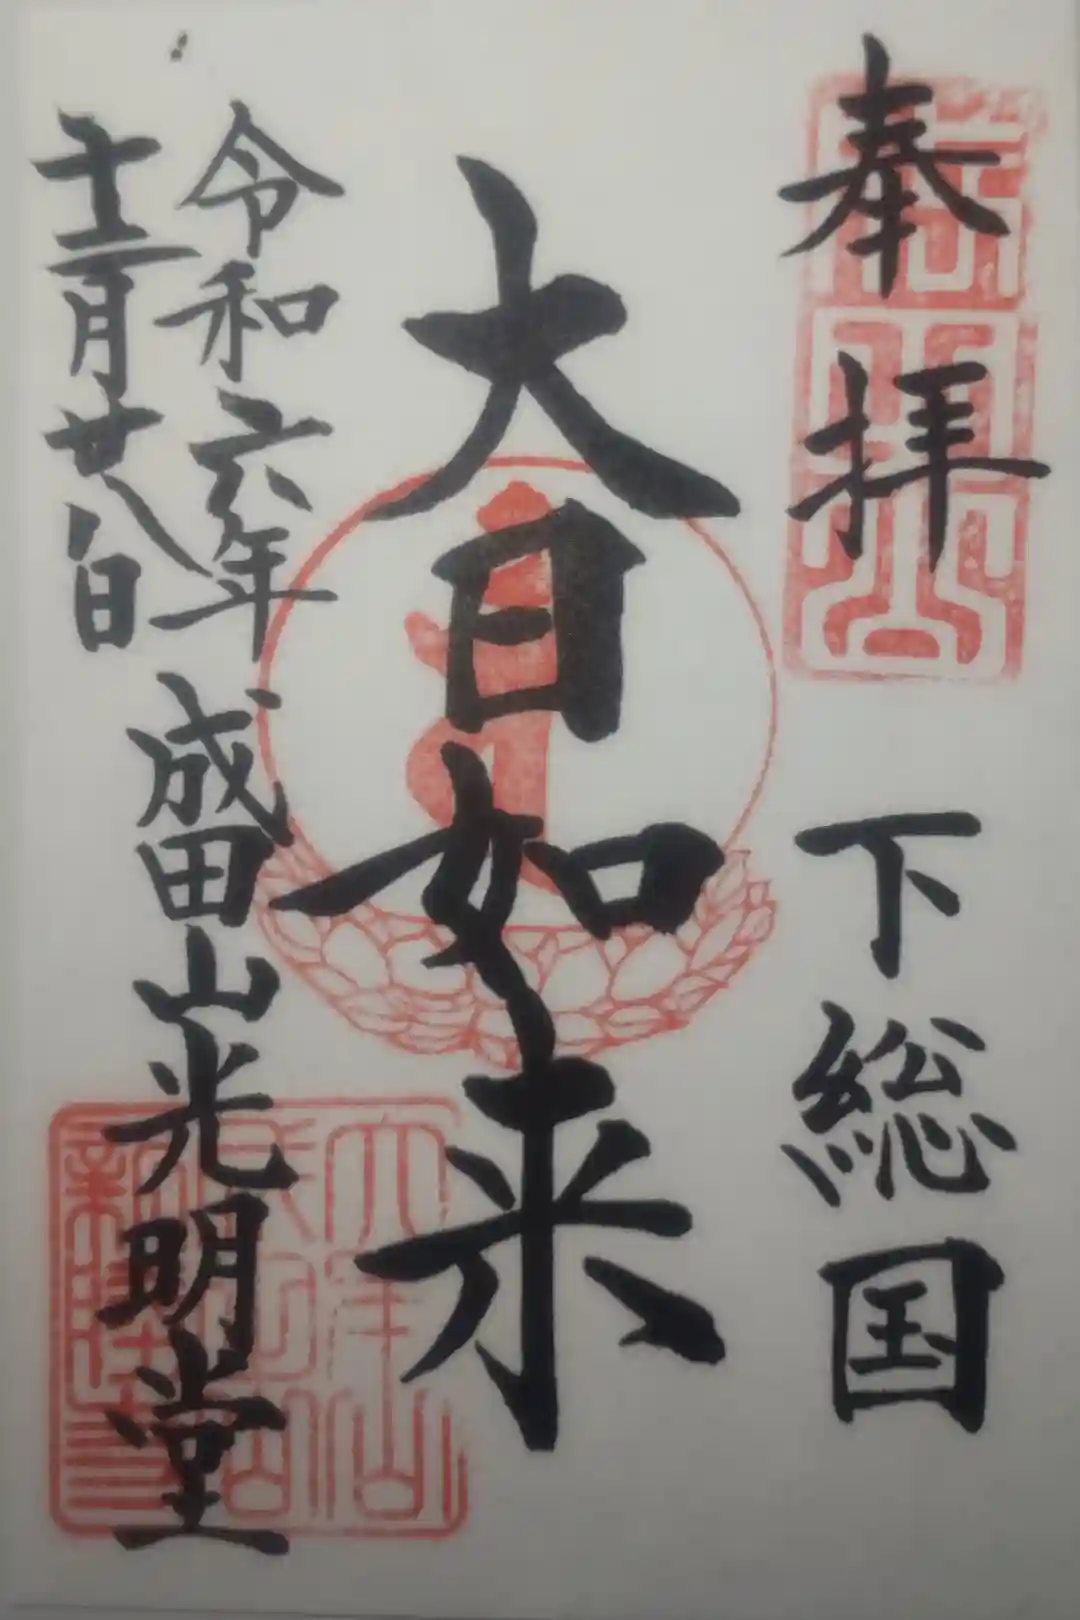 奉拝 下総国
大日如来
令和六年
十二月廿八日
成田山光明堂